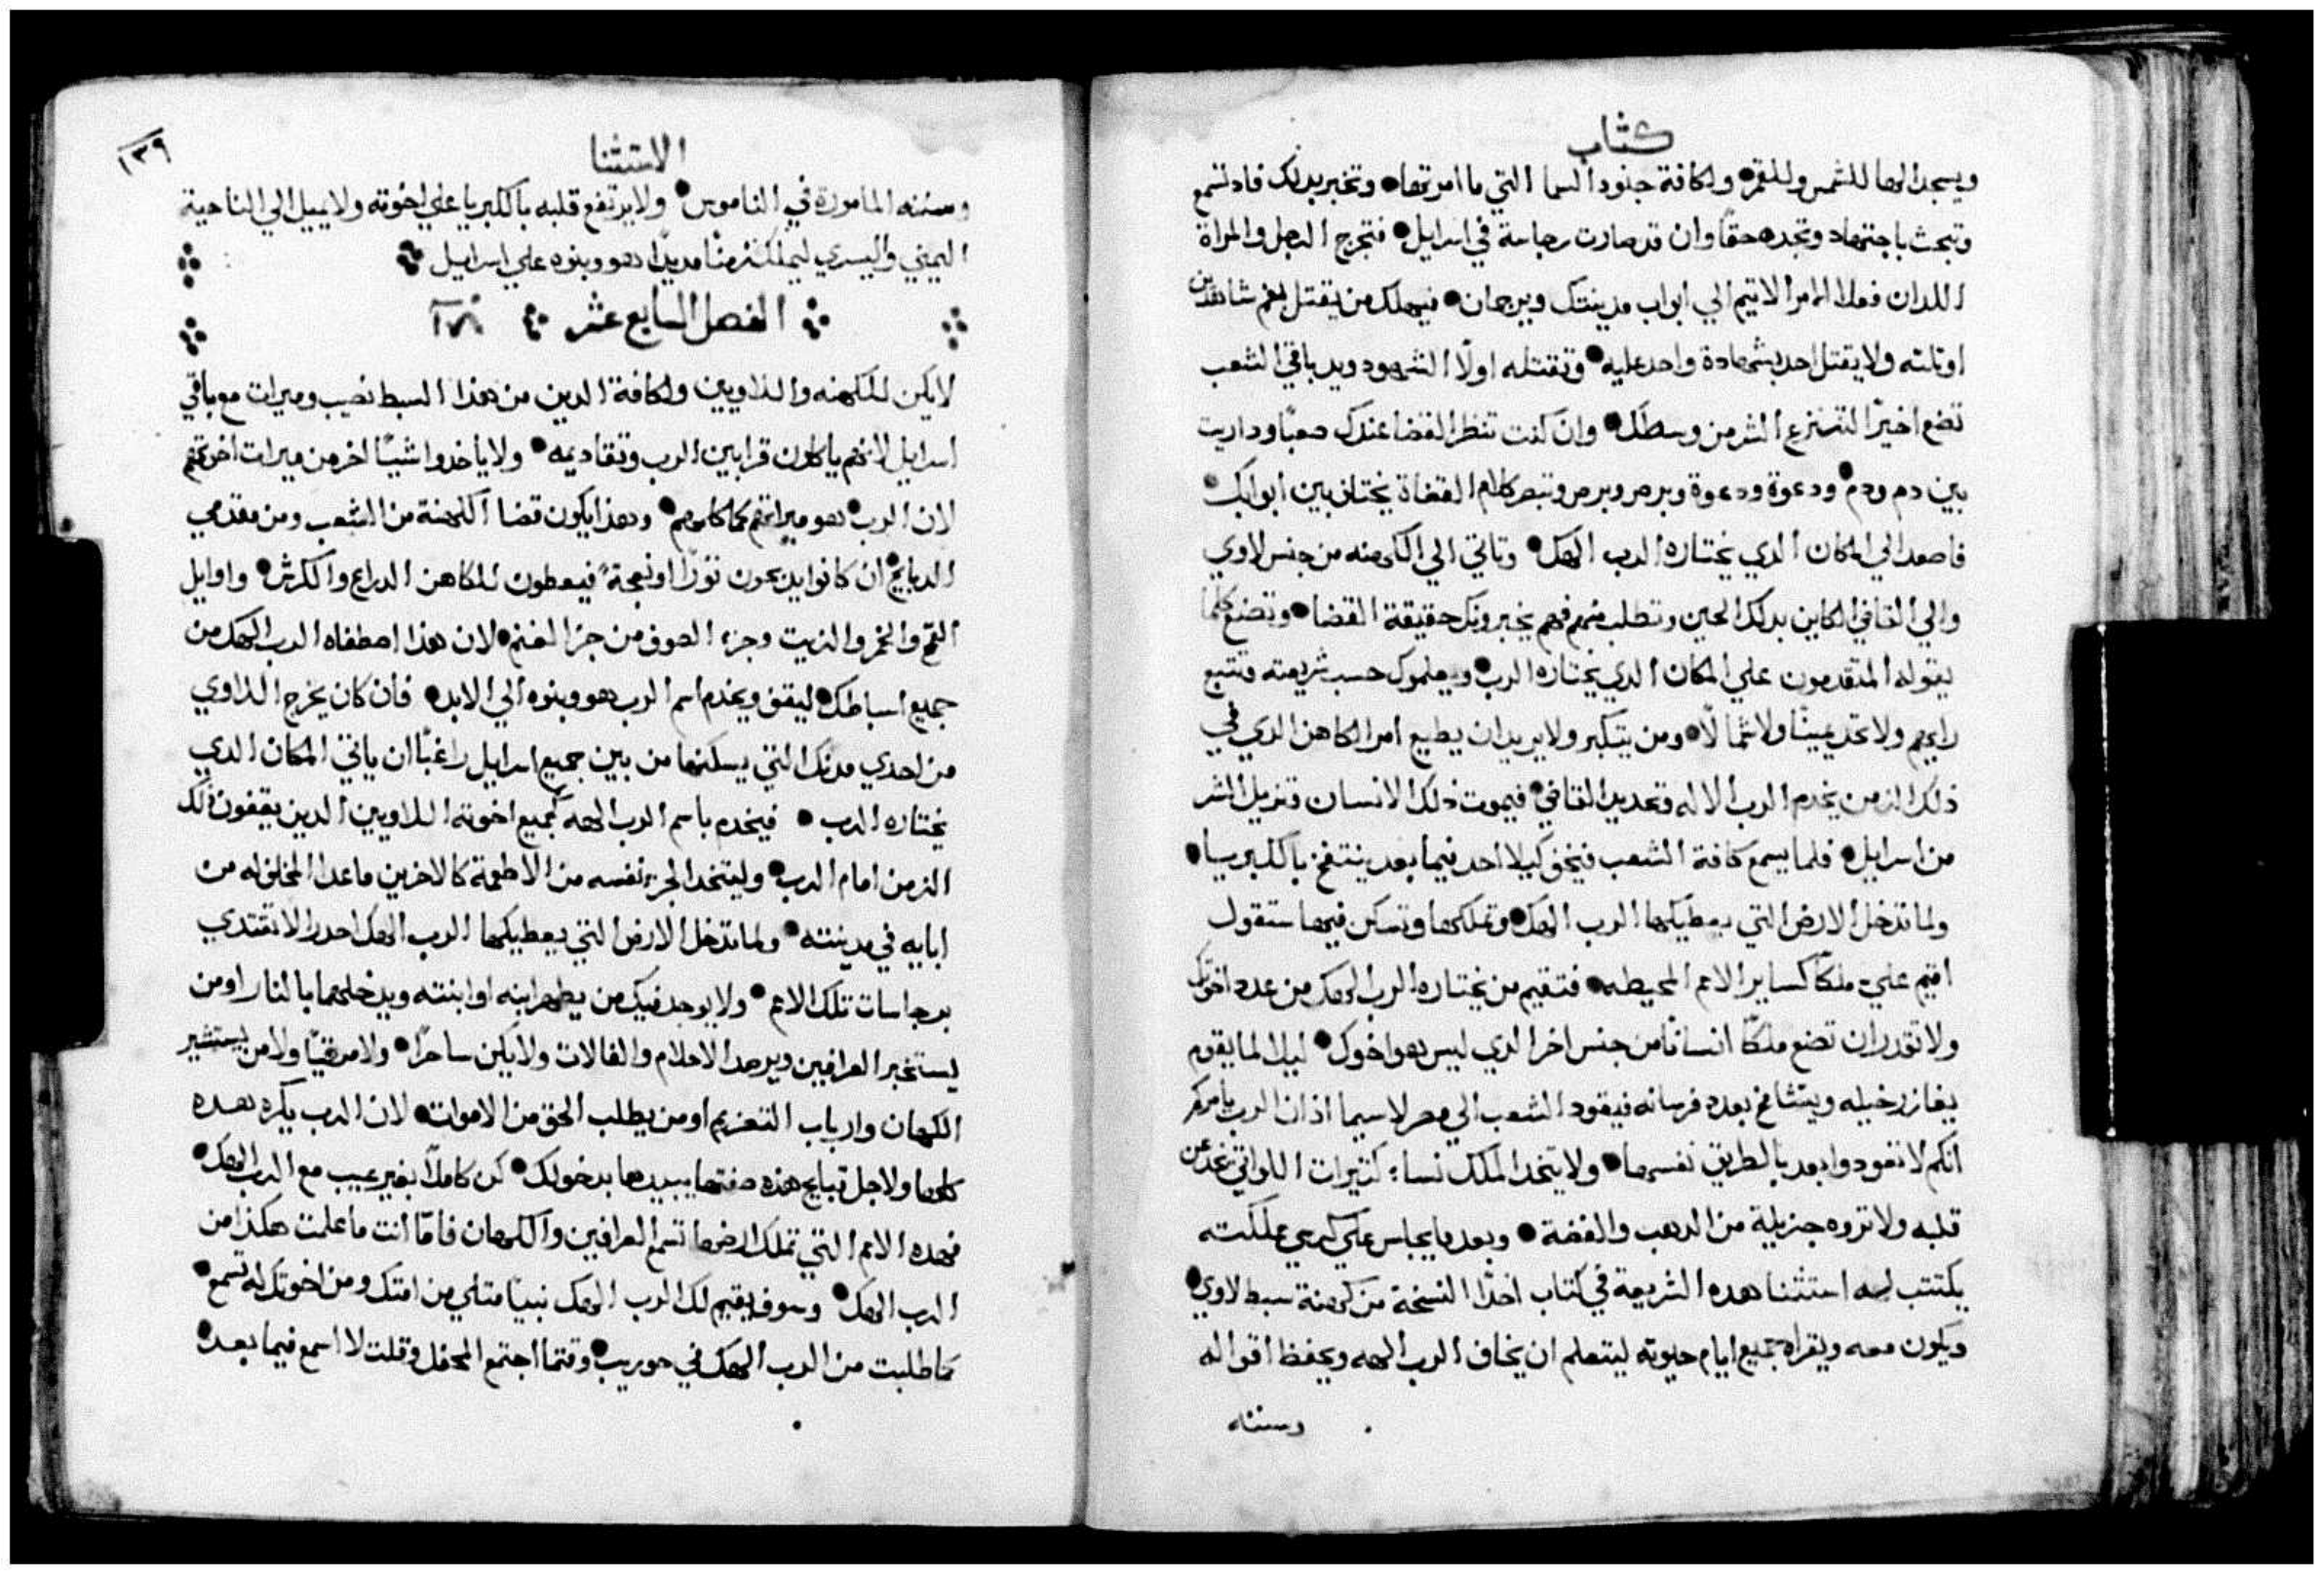 كتاب
ويسجد الها للشمس وللقمر ولكافة جنود السما التي ما امرتها وتخبر بدلك فاد تسمع
وتبحث باجتهاد وتجده حقًا وان قد صارت رجاسة في اسرايل فتخرج الرجل والمراة
اللدان فعلا الامر الاتيم الي ابواب مدينتك ويرجمان فيهلك من يقتل بفم شاهدين
او تلته ولا يقتل احد بشهادة واحد عليه وتقتله اولًا الشهود ويد باقي الشعب
تضع اخيرًا لتنتزع الشر من وسطك وان كنت تنظر القضا عندك صعبًا وداريت
بين دم ودم ودعوة ودعوة وبرص وبرص وتبصر كلام القضاة يختلف بين ابوابك
فاصعد الي المكان الدي يختاره الرب الهك وتاتي الي الكهنه من جنس لاوي
والي القاضي الكاين بدلك الحين وتطلب منهم فهم يخبرونك حقيقة القضا وتضع كلما
يقوله المتقدمون علي المكان الدي يختاره الرب ويعلموك حسب شريعته فتتبع
رايهم ولا تحد يمينًا ولا شمالًا ومن يتكبر ولا يريد ان يطيع امر الكاهن الدي في
ذلك الزمن يخدم الرب الاله وتحديد القاضي فيموت ذلك الانسان وتزيل الشر
من اسرايل فلما يسمع كافة الشعب فيخف كيلا احد فيما بعد ينتفخ بالكبريا
ولما تدخل الارض التي يعطيكها الرب الهك وتملكها وتسكن فيها ستقول
اقيم علي ملكًا كساير الامم المحيطه فتقيم من يختاره الرب الهك من عدد اخوتك
ولا تقدر ان تضع ملكًا انسانًا من جنس اخر الدي ليس هو اخوك ليلا لما يقوم
بغازر خيله ويتشامخ بعدد فرسانه فيقود الشعب الي مصر لاسيما اذ ان الرب يامركم
انكم لا تعودوا بعد بالطريق نفسها ولا يتخد الملك نساء كثيرات اللواتي تخدعن
قلبه ولا تروه جزيلة من الدهب والفضة وبعدما يجلس علي كرسي مملكته
يكتتب له استثنا هده الشريعة في كتاب اخدًا النسخة من كهنة سبط لاوي
ويكون معه ويقراه جميع ايام حيوته ليتعلم ان يخاف الرب الهه ويحفظ اقواله
وسننه
الاستثنا
١٣٩
وسننه المامورة في الناموس ولا يرتفع قلبه بالكبريا علي اخوته ولا يميل الي الناحية
اليمني واليسري ليملك زمنًا مديدًا هو وبنوه علي اسرايل
الفصل السابع عشر
لا يكن للكهنه واللاويين ولكافة الدين من هذا السبط نصيب وميرات مع باقي
اسرايل لانهم ياكلون قرابين الرب وتقاديمه ولا ياخدوا شيًا اخر من ميرات اخوتهم
لان الرب هو ميراتهم كما كلمهم وهذا يكون قضا الكهنة من الشعب ومن مقدمي
الدبايح ان كانوا يدبحون تورًا او نعجة فيعطون للكاهن الدراع والكرش واوايل
القمح والخمر والزيت وجزء الصوف من جز الغنم لان هذا اصطفاه الرب الهك من
جميع اسباطك ليقف ويخدم اسم الرب هو وبنوه الي الابد فان كان يخرج اللاوي
من احدي مدنك التي يسكنها من بين جميع اسرايل راغبًا ان ياتي المكان الدي
يختاره الرب فيخدم باسم الرب الهه كجميع اخوته اللاويين الدين يقفون ذلك
الزمن امام الرب وليتخد الجزء نفسه من الاطعمة كالاخرين ماعدا المخلف له من
ابايه في مدينته ولما تدخل الارض التي يعطيكها الرب الهك احدر الا تقتدي
برجاسات تلك الامم ولا يوجد فيك من يطهر ابنه او ابنته ويدخلهما بالنار او من
يستخبر العرافين ويرصد الاحلام والفالات ولا يكن ساحرًا ولا مرقيًا ولا من يستشير
الكهان وارباب التعزيم او من يطلب الحق من الاموات لان الرب يكره هده
كلها ولاجل قبايح هذه صفتها يبيدها بدخولك كن كاملًا بغير عيب مع الرب الهك
فهده الامم التي تملك ارضها تسمع العرافين والكهان فامّا انت ما علمت هكذا من
الرب الهك وسوف يقيم لك الرب الهك نبيًا متلي من امتك ومن اخوتك له تسمع
كما طلبت من الرب الهك في حوريب وقتما اجتمع المحفل وقلت لا اسمع فيما بعد